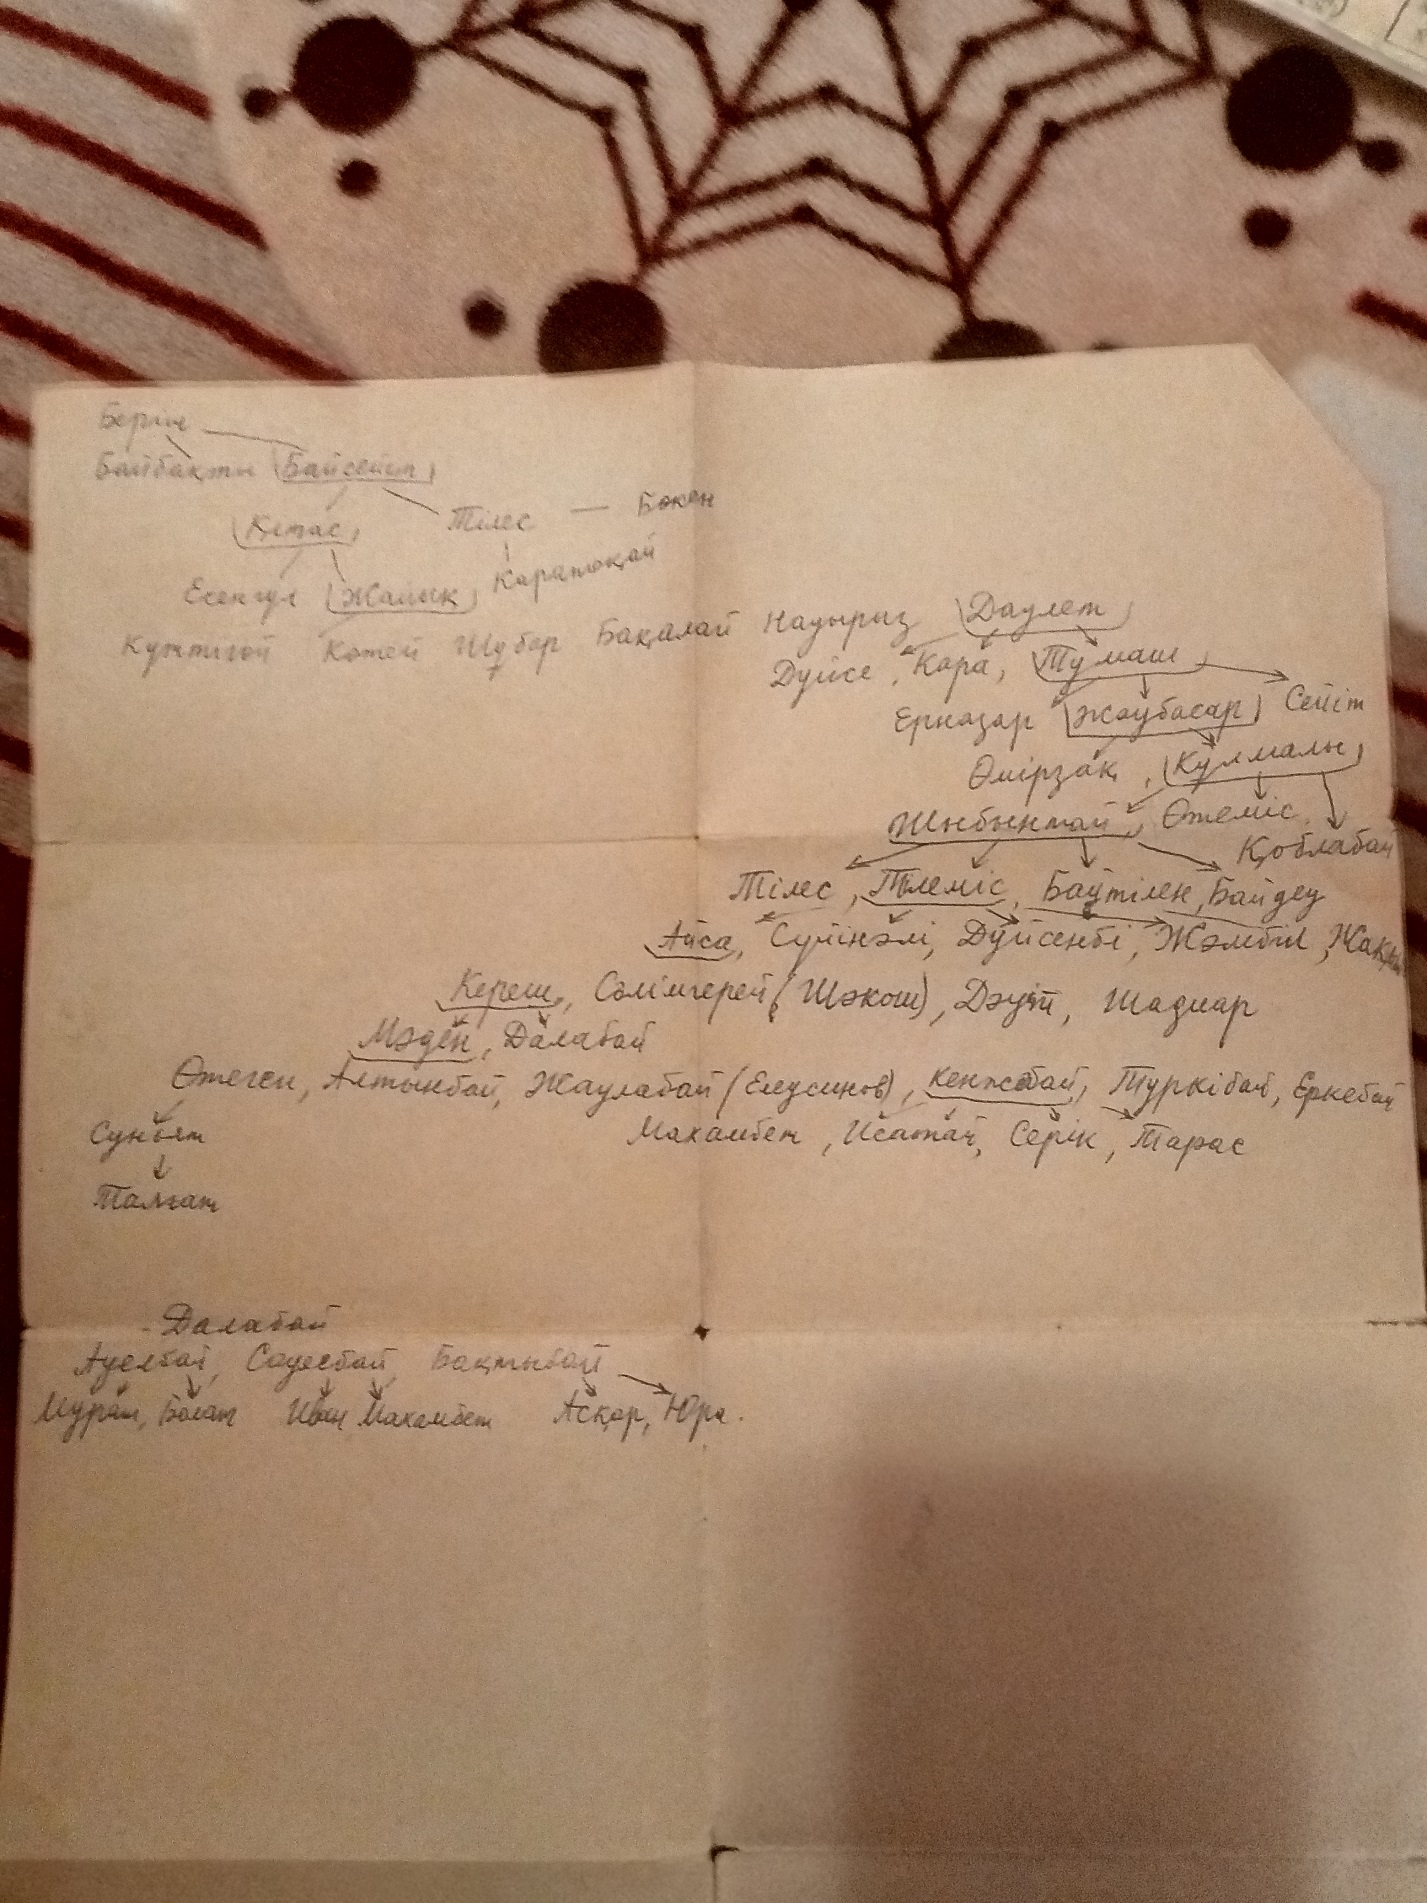 Берш
Байбақты Байсейіт
Қстас Тілес — Бөкен
Есенгул Жайық Каратоқай
Күнтігой Көтей Шұбар Бақалай Наурыз Даулет
Дүйсе, Кара, Тумаш
Ерназар Жаубасар Сейіт
Өмірзақ, Құлмалы
Шыбынтай, Өтеміс, Қоблабай
Тілес, Тілеміс, Баутілен, Байдеу
Айса, Сүйінәлі, Дүйсенбі, Жәмбіл,
Кереш, Сәлімгерей (Шәкош), Дәуіт, Шадияр
Мәден, Далабай
Өтеген, Алтынбай, Жаулабай (Елеусинов), Кенжебай, Туркібай, Еркебай
Сунбят Махамбет, Исатай, Серік, Тарас
Талғат
- Далабай
Ауелбай, Сауесбай, Бақтыбай
Мурат, Болат Иван Махамбет Асқар, Юра.